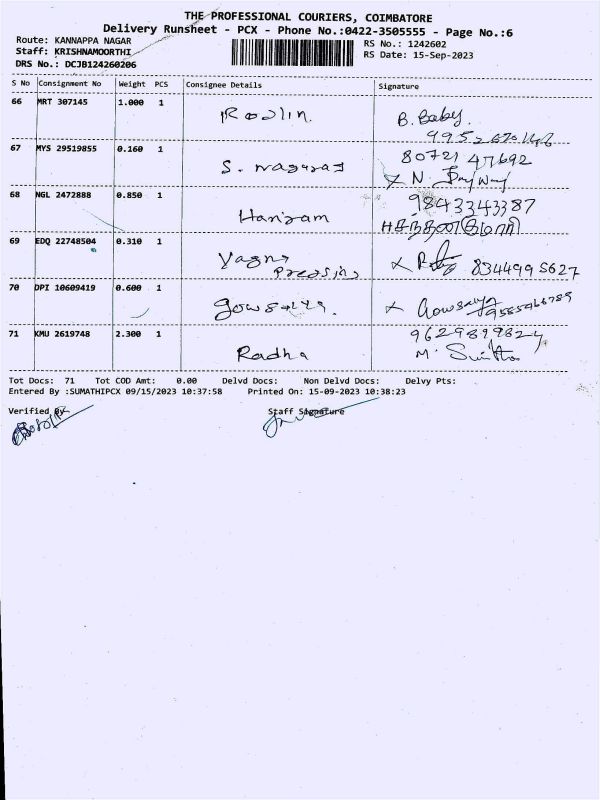 THE PROFESSIONAL COURIERS, COIMBATORE
Delivery Runsheet - PCX - Phone No.:0422-3505555 - Page No.:6
Route: KANNAPPA NAGAR
RS No.: 1242602
Staff: KRISHNAMOORTHI
RS Date: 15-Sep-2023
DRS No.: DCJB124260206
S No Consignment No Weight PCS Consignee Details Signature
66 MRT 307145 1.000 1 Rodlin. B. Baby.
67 MYS 29519855 0.160 1 S. nagaraj 80721 47692
N.
68 NGL 2472888 0.850 1 Hariram 9843343387
69 EDQ 22748504 0.310 1 Yagna
Pressing 8344995627
70 DPI 10609419 0.600 1 Gowsalya. Gowsalya
71 KMU 2619748 2.300 1 Radha 9629899824
M.
Tot Docs: 71 Tot COD Amt: 0.00 Delvd Docs: Non Delvd Docs: Delvy Pts:
Entered By :SUMATHIPCX 09/15/2023 10:37:58 Printed On: 15-09-2023 10:38:23
Verified By
Staff Signature